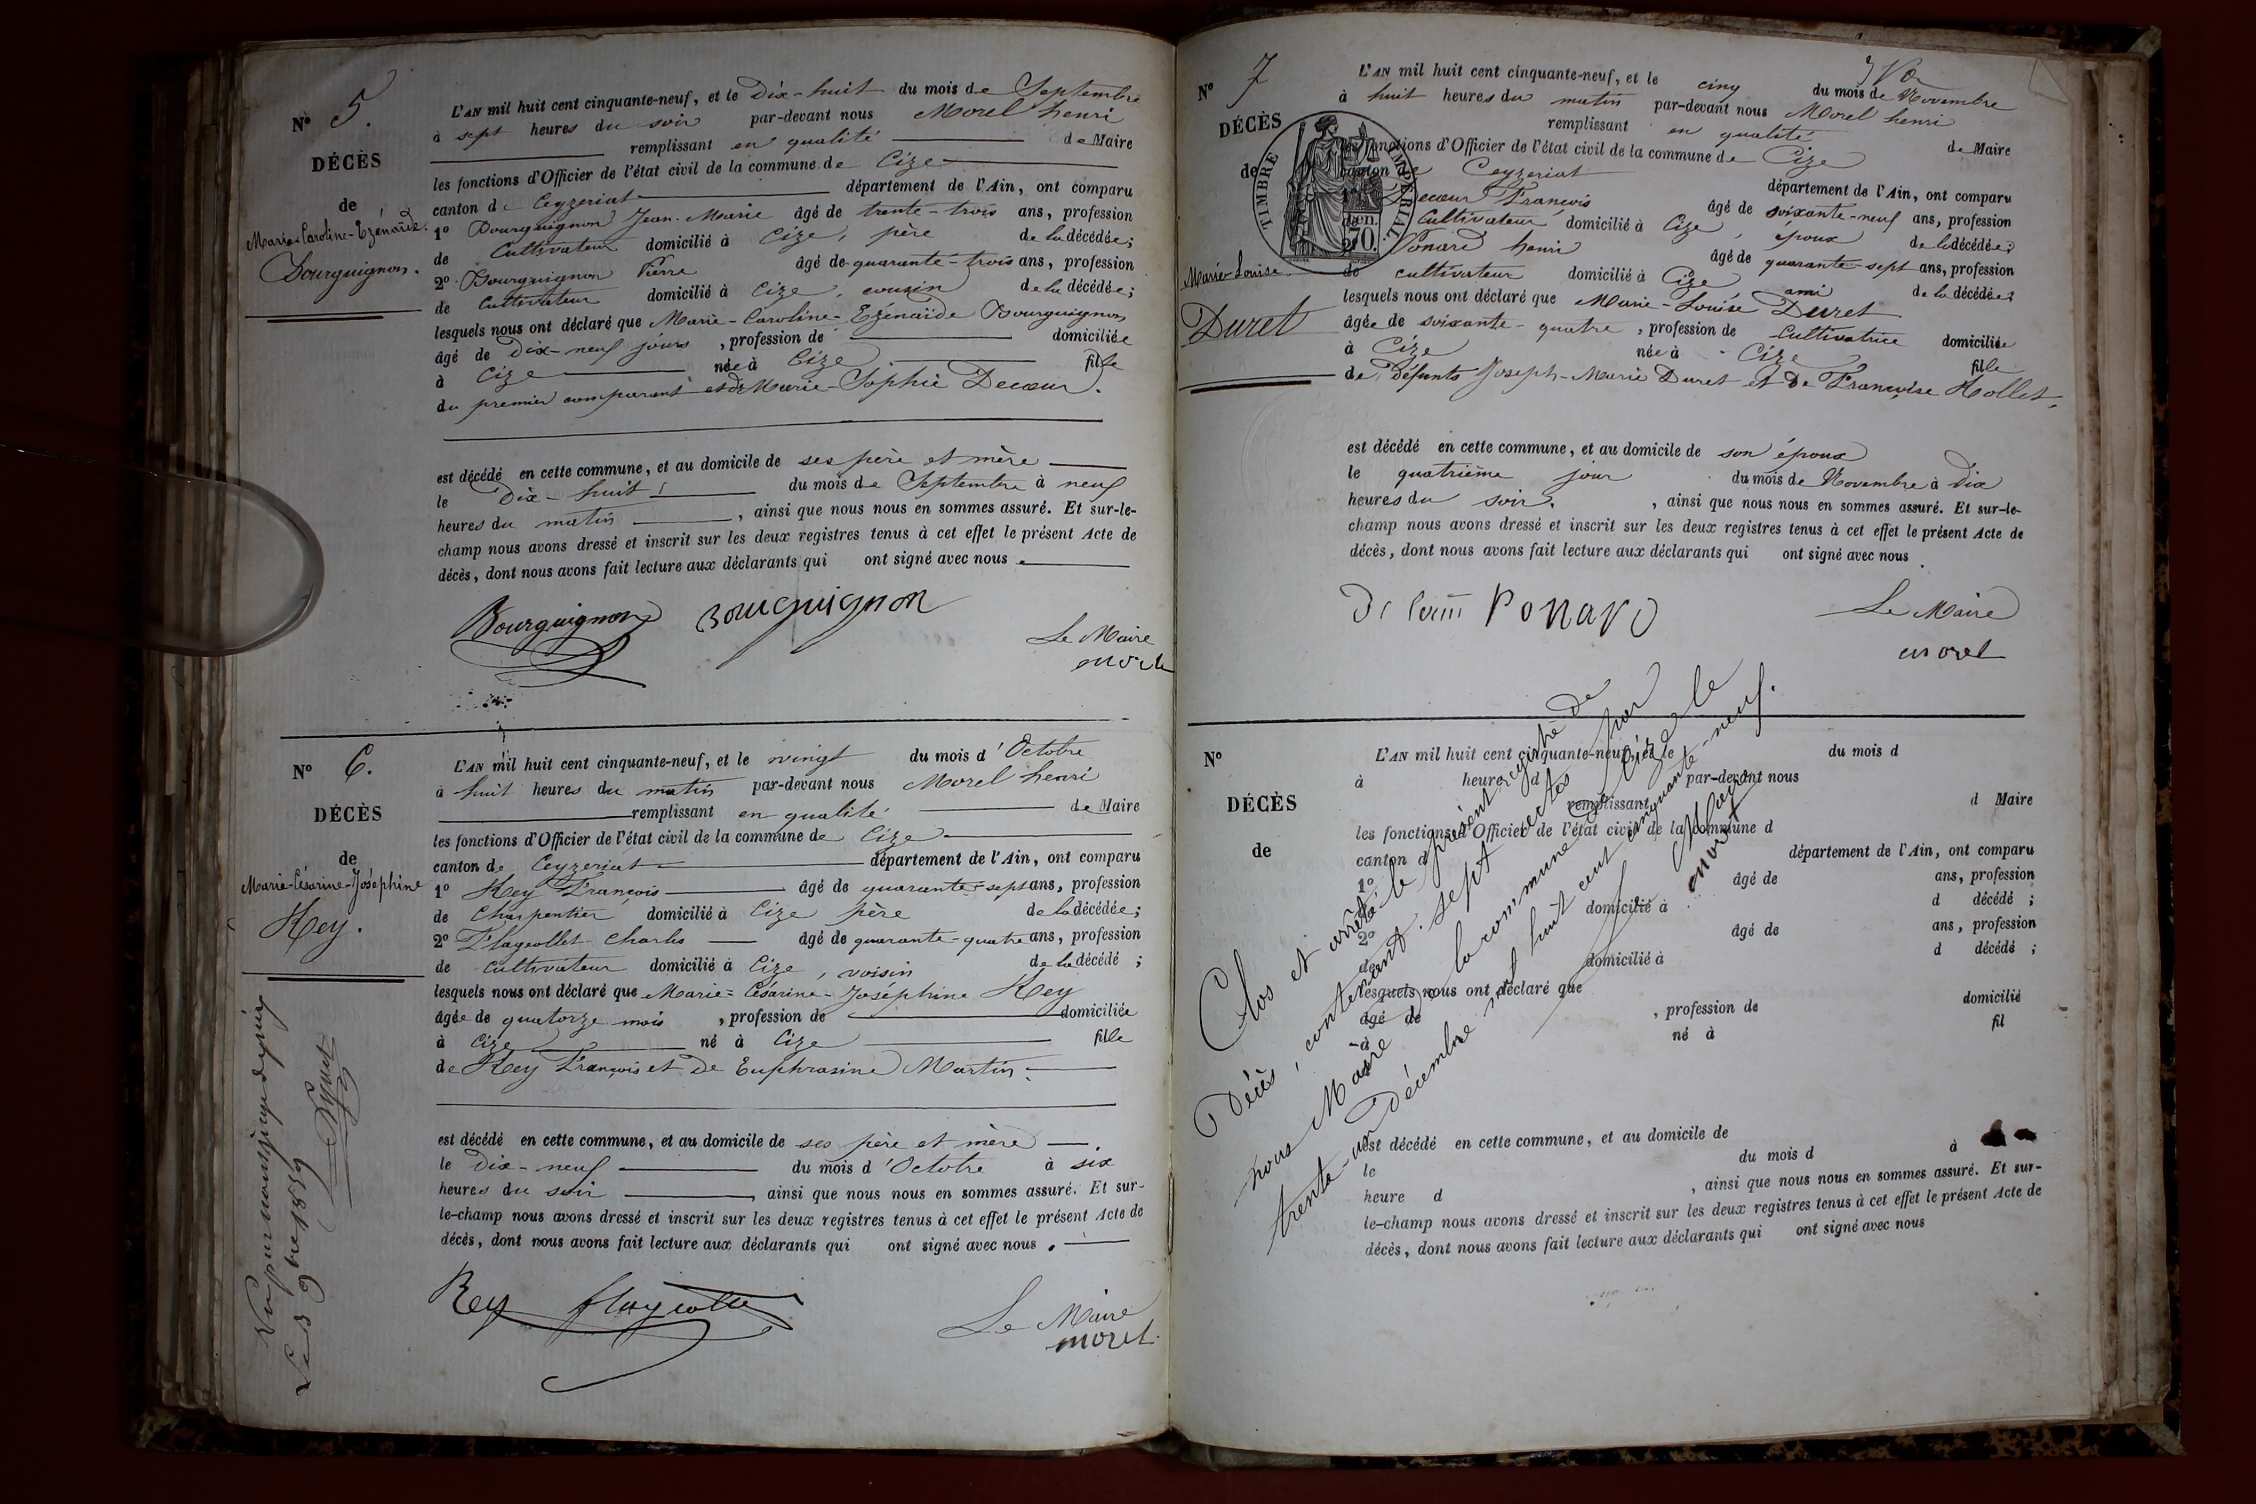 N° 5.
DÉCÈS
de
Marie-Caroline-Ezénaïde
Bourguignon.
L'AN mil huit cent cinquante-neuf, et le Dix-huit du mois de Septembre
à sept heures du soir par-devant nous Morel henri
remplissant en qualité de Maire
les fonctions d'Officier de l'état civil de la commune de Cize
canton de Ceyzeriat département de l'Ain, ont comparu
1° Bourguignon Jean-Marie âgé de trente-trois ans, profession
de Cultivateur domicilié à Cize, père de la décédée;
2° Bourguignon Pierre âgé de quarante-trois ans, profession
de Cultivateur domicilié à Cize, cousin de la décédée;
lesquels nous ont déclaré que Marie-Caroline-Ezénaïde Bourguignon
âgé de Dix-neuf jours, profession de domiciliée
à Cize née à Cize fille
du premier comparant et de Marie-Sophie Decœur.
est décédé en cette commune, et au domicile de ses père et mère
le Dix-huit du mois de Septembre à neuf
heures du matin, ainsi que nous nous en sommes assuré. Et sur-le-
champ nous avons dressé et inscrit sur les deux registres tenus à cet effet le présent Acte de
décès, dont nous avons fait lecture aux déclarants qui ont signé avec nous.
Bourguignon Bourguignon
Le Maire
morel
N° 6.
DÉCÈS
de
Marie-Césarine-Joséphine
Rey.
L'AN mil huit cent cinquante-neuf, et le vingt du mois d'Octobre
à huit heures du matin par-devant nous Morel henri
remplissant en qualité de Maire
les fonctions d'Officier de l'état civil de la commune de Cize
canton de Ceyzeriat département de l'Ain, ont comparu
1° Rey François âgé de quarante-sept ans, profession
de Charpentier domicilié à Cize père de la décédée;
2° Flageollet Charles âgé de quarante-quatre ans, profession
de cultivateur domicilié à Cize, voisin de la décédé;
lesquels nous ont déclaré que Marie-Césarine-Joséphine Rey
âgée de quatorze mois, profession de domiciliée
à Cize né à Cize fille
de Rey François et de Euphrasine Martin.
est décédé en cette commune, et au domicile de ses père et mère
le Dix-neuf du mois d'Octobre à six
heures du soir, ainsi que nous nous en sommes assuré. Et sur-
le-champ nous avons dressé et inscrit sur les deux registres tenus à cet effet le présent Acte de
décès, dont nous avons fait lecture aux déclarants qui ont signé avec nous.
Rey flageollet
Le Maire
morel
Vu par nous
Le 3 9bre 1859
N° 7
DÉCÈS
de
Marie-Louise
Duret
TIMBRE IMPÉRIAL
70.
L'AN mil huit cent cinquante-neuf, et le cinq du mois de Novembre
à huit heures du matin par-devant nous Morel henri
remplissant en qualité de Maire
les fonctions d'Officier de l'état civil de la commune de Cize
canton de Ceyzeriat département de l'Ain, ont comparu
1° Decœur François âgé de soixante-neuf ans, profession
de Cultivateur domicilié à Cize, époux de la décédée;
2° Ponard henri âgé de quarante-sept ans, profession
de cultivateur domicilié à Cize ami de la décédée;
lesquels nous ont déclaré que Marie-Louise Duret
âgée de soixante-quatre, profession de Cultivatrice domiciliée
à Cize née à Cize fille
de Défunts Joseph-Marie Duret et de Françoise
est décédé en cette commune, et au domicile de son époux
le quatrième jour du mois de Novembre à Dix
heures du soir, ainsi que nous nous en sommes assuré. Et sur-le-
champ nous avons dressé et inscrit sur les deux registres tenus à cet effet le présent Acte de
décès, dont nous avons fait lecture aux déclarants qui ont signé avec nous.
Ponard
Le Maire
morel
N°
DÉCÈS
de
L'AN mil huit cent cinquante-neuf, et le du mois d
à heure d par-devant nous
remplissant d Maire
les fonctions d'Officier de l'état civil de la commune d
canton d département de l'Ain, ont comparu
1° âgé de ans, profession
d domicilié à d décédé;
2° âgé de ans, profession
de domicilié à d décédé;
lesquels nous ont déclaré que
âgé de, profession de domicilié
à né à fil
est décédé en cette commune, et au domicile de
le du mois d à
heure d, ainsi que nous nous en sommes assuré. Et sur-
le-champ nous avons dressé et inscrit sur les deux registres tenus à cet effet le présent Acte de
décès, dont nous avons fait lecture aux déclarants qui ont signé avec nous
Clos et arrêté le présent registre de
Décès, contenant sept actes par
nous Maire de la commune de Cize le
trente-un Décembre mil huit cent cinquante-neuf.
Le Maire
morel